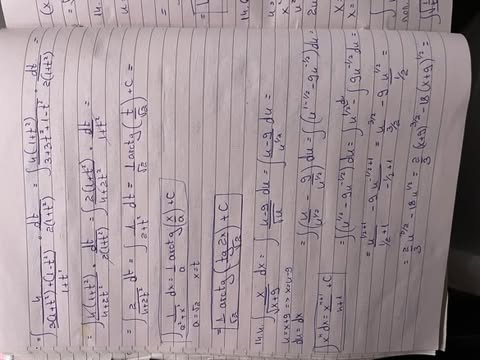 = ∫ 4 / ((3(1+t²)+(1-t²))/(1+t²)) · dt/(2(1+t²)) = ∫ 4(1+t²)/(3+3t²+1-t²) · dt/(2(1+t²))
= ∫ 4(1+t²)/(4+2t²) · dt/(2(1+t²)) = ∫ 2(1+t²)/(4+2t²) · dt/(1+t²) =
= ∫ 2/(4+2t²) dt = ∫ 1/(2+t²) dt = 1/√2 arctg(t/√2) + C =
∫ 1/(a²+x²) dx = 1/a arctg(x/a) + C
a=√2 x=t
= 1/√2 arctg(tg2x/√2) + C
14.4. ∫ x/√(x+9) dx = ∫ (u-9)/√u du = ∫ (u-9)/u^(1/2) du =
u=x+9 => x=u-9
du=dx
= ∫(u/u^(1/2) - 9/u^(1/2)) du = ∫(u^(1-1/2) - 9u^(-1/2)) du =
∫x^n dx = x^(n+1)/(n+1) + C
= ∫(u^(1/2) - 9u^(-1/2)) du = ∫u^(1/2) du - ∫9u^(-1/2) du =
= u^(1/2+1)/(1/2+1) - 9 u^(-1/2+1)/(-1/2+1) = u^(3/2)/(3/2) - 9 u^(1/2)/(1/2) =
= 2/3 u^(3/2) - 18u^(1/2) = 2/3 (x+9)^(3/2) - 18(x+9)^(1/2) =